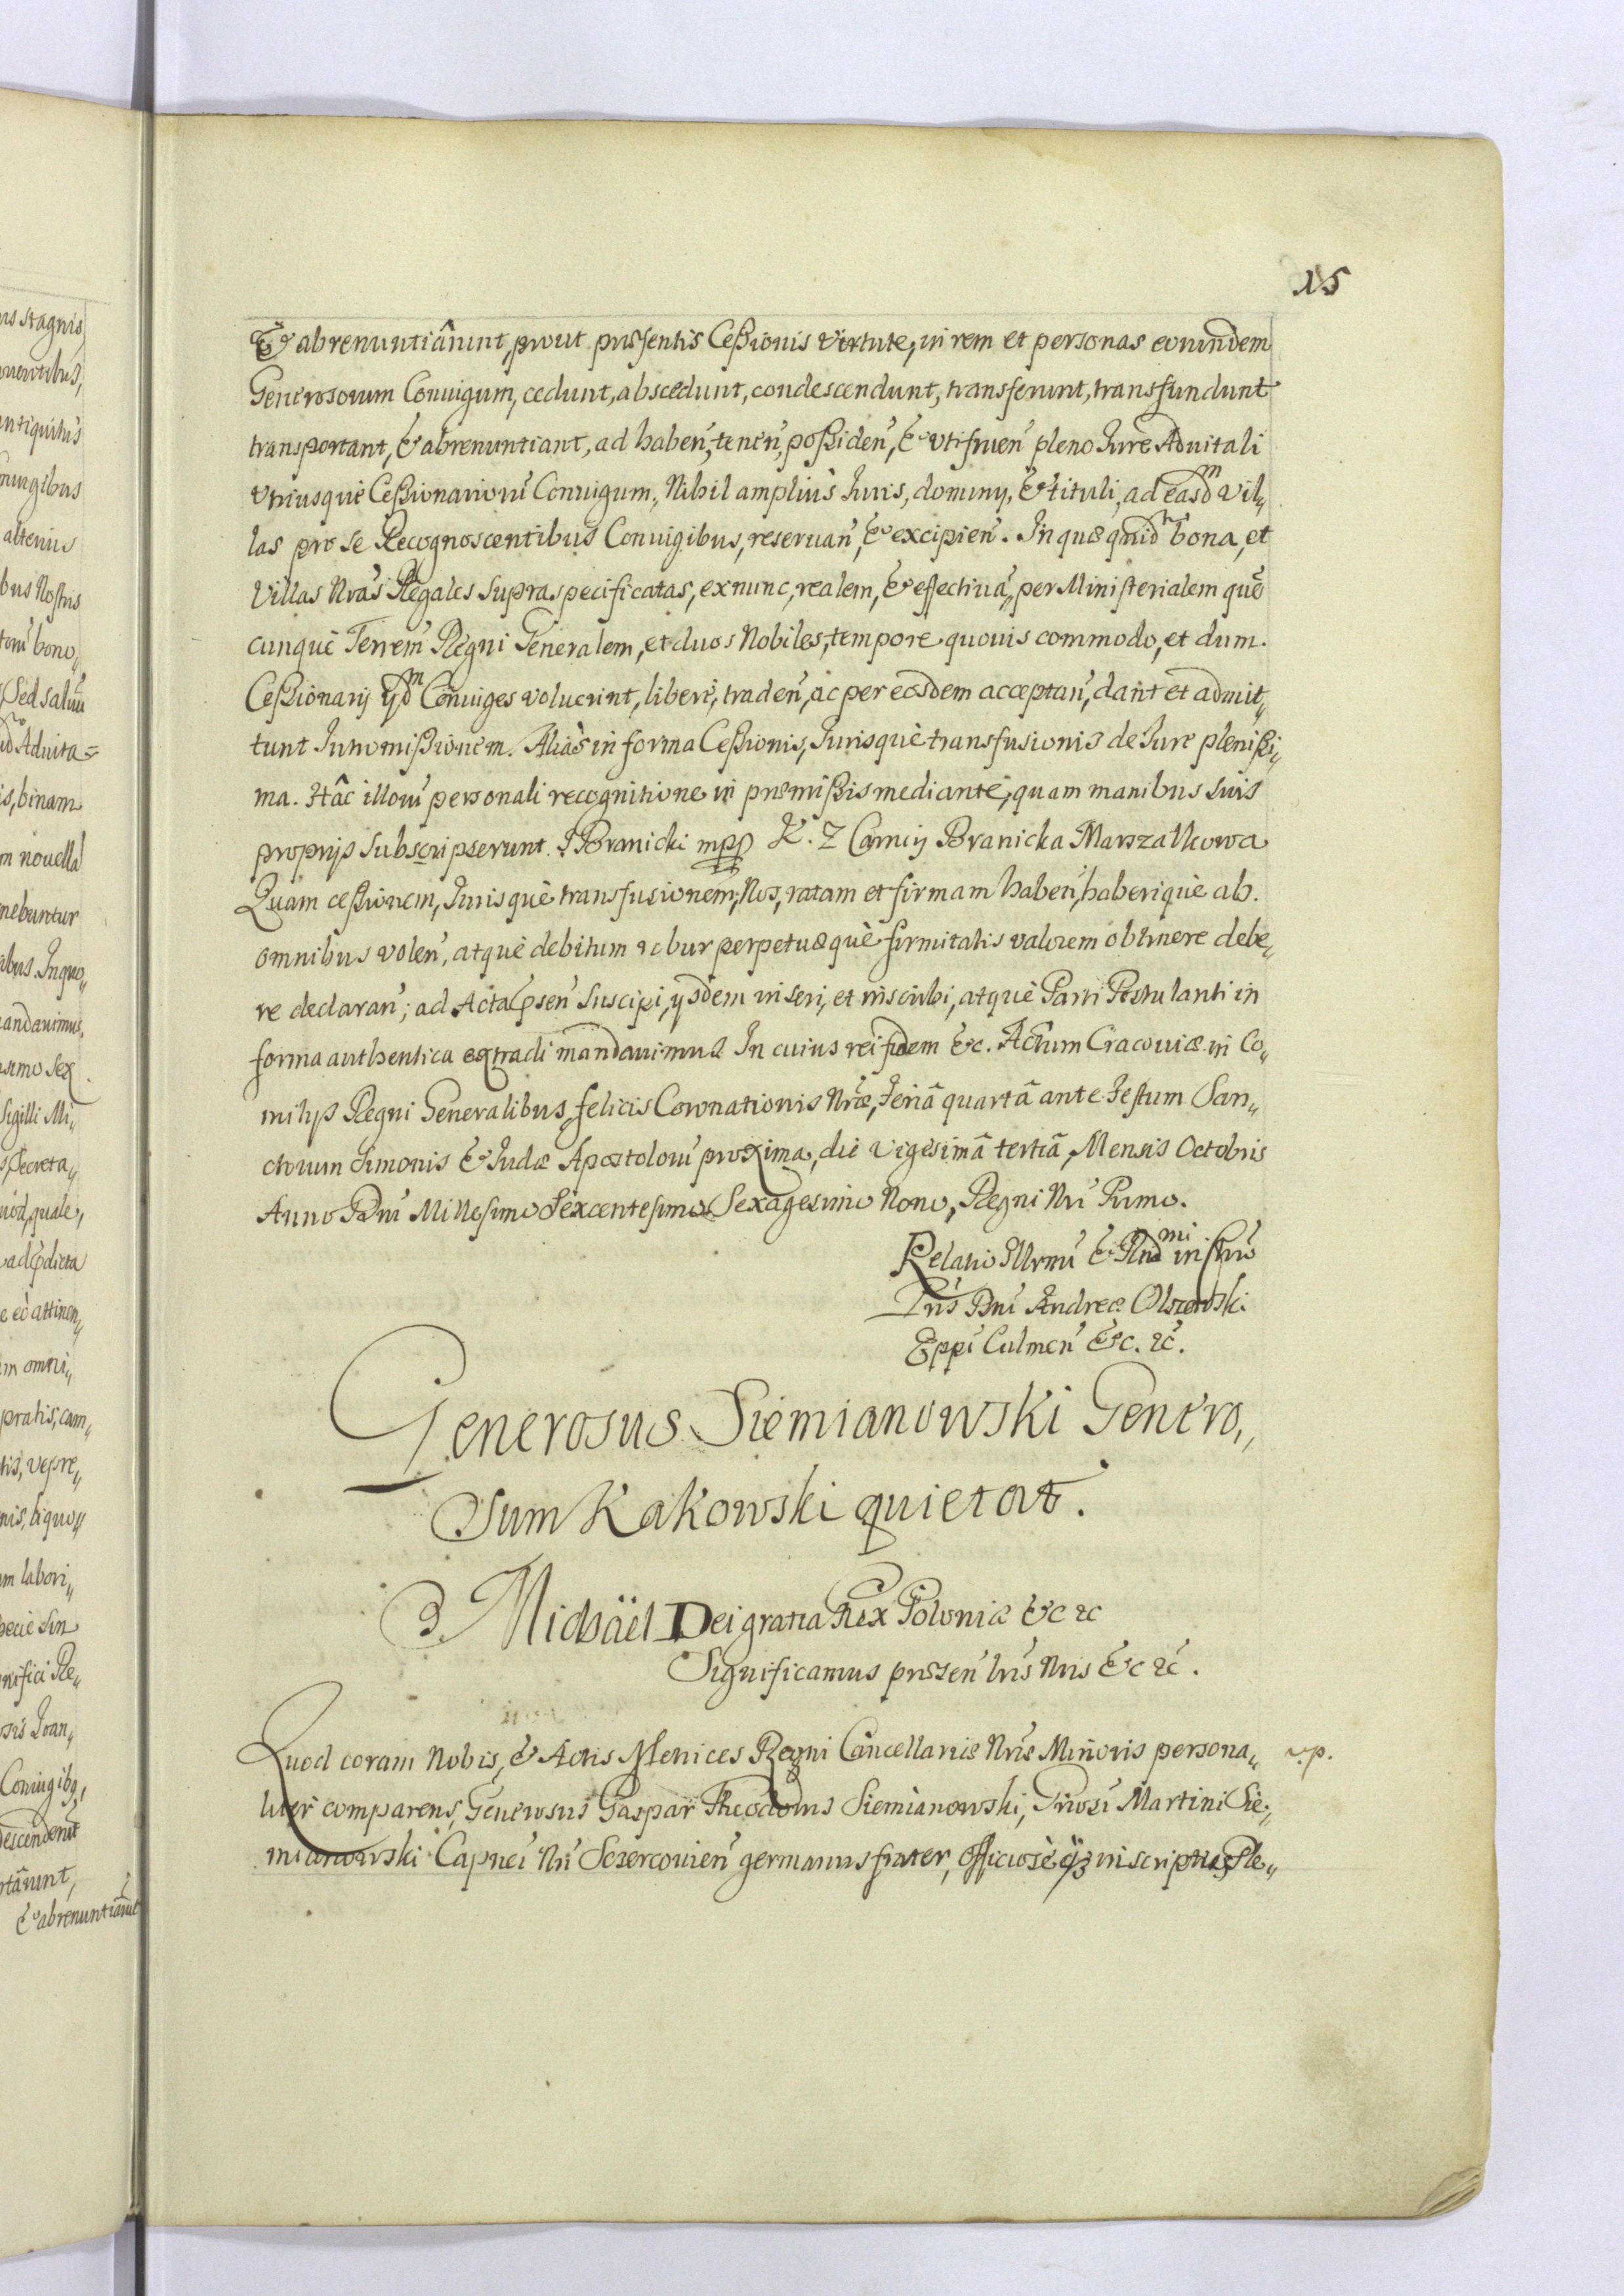 15
& abrenuntiârunt, prout prsentis Cessionis virtute, in rem et personas eorundem
Generosorum Coniugum, cedunt, abscedunt, condescendunt, transferunt, transfundunt
transportant, & abrenuntiant, ad haben̄, tenen̄, possiden̄, & vtifruen̄ pleno Iure Aduitali
vtriusquè Cessionarioru̅ Coniugum, Nihil ampliùs Iuris, dominij, & tituli, ad easdm vil„
las pro se Recognoscentibus Coniugibus, reseruan̄, & excipien̄. In quæ quidm bona, et
Villas Nras Regales supraspecificatas, ex nunc, realem, & effectiuā, per Ministerialem quē
cunquè Terrem̄ Regni Generalem, et duos Nobiles, tempore quouis commodo, et dum.
Cessionarij ijdm Coniuges voluerint, liberè, traden̄, ac per eosdem acceptan̄, dant et admit„
tunt Intromissionem. Aliàs in forma Cessionis, Iurisquè transfusionis de Iure plenissi„
ma. Hâc illoru̅ personali recognitione in præmissis mediante, quam manibus suis
proprijs subscripserunt. Branicki mpp K. Z Branicka Marszałkowa
Quam cessionem, Iurisquè transfusionem, Nos, ratam et firmam haben̄, haberiquè ab.
omnibus volen̄, atquè debitum robur perpetuæquè firmitatis valorem obtinere debe„
re declaran̄; ad Acta psen̄ suscipi, ijsdem inseri, et inscribi, atquè Parti Postulanti in
forma authentica extradi mandauimus In cuius rei fidem &c. Actum Cracouiæ in Co„
mitijs Regni Generalibus, felicis Coronationis Nræ, feriâ quartâ ante Festum San„
ctorum Simonis & Iudæ Apostoloru̅ proxima, die vigesimâ tertiâ, Mensis Octobris
Anno Dni Millesimo Sexcentesimo Sexagesimo Nono, Regni Nri Primo.
Relatio Illrmi & Rndmi in Chro
Pris Dni Andreæ Olszowski
Eppi Culmen̄ &c. &c.
Generosus Siemianowski Genero„
sum Kakowski quietat.
3. Michäel Dei gratia Rex Poloniæ &c &c
Significamus prsen̄ lris Nris &c &c.
Quod coram Nobis, & Actis Metrices Regni Cancellariæ Nræ Minoris persona„
v.p.
liter comparens, Generosus Gaspar Theodorus Siemianowski, Gnosi Martini Sie„
mianowski Capnei Nri Szercouien̄ germanus frater, Officiosè inscriptus Ple„